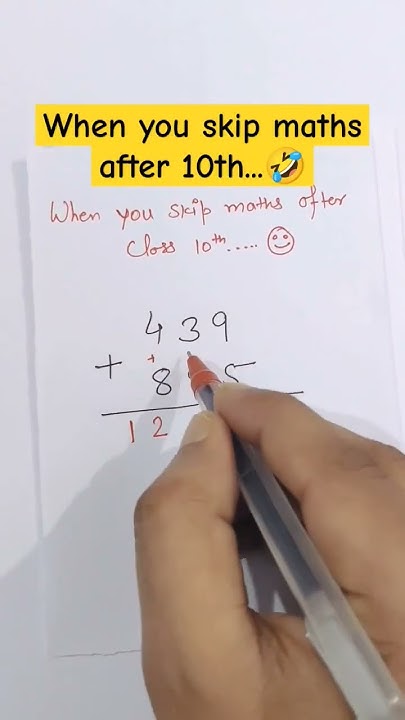 When you skip maths
after 10th...🤣
When you skip maths after
Class 10th..... ☺
439
+
+ 8 5
12